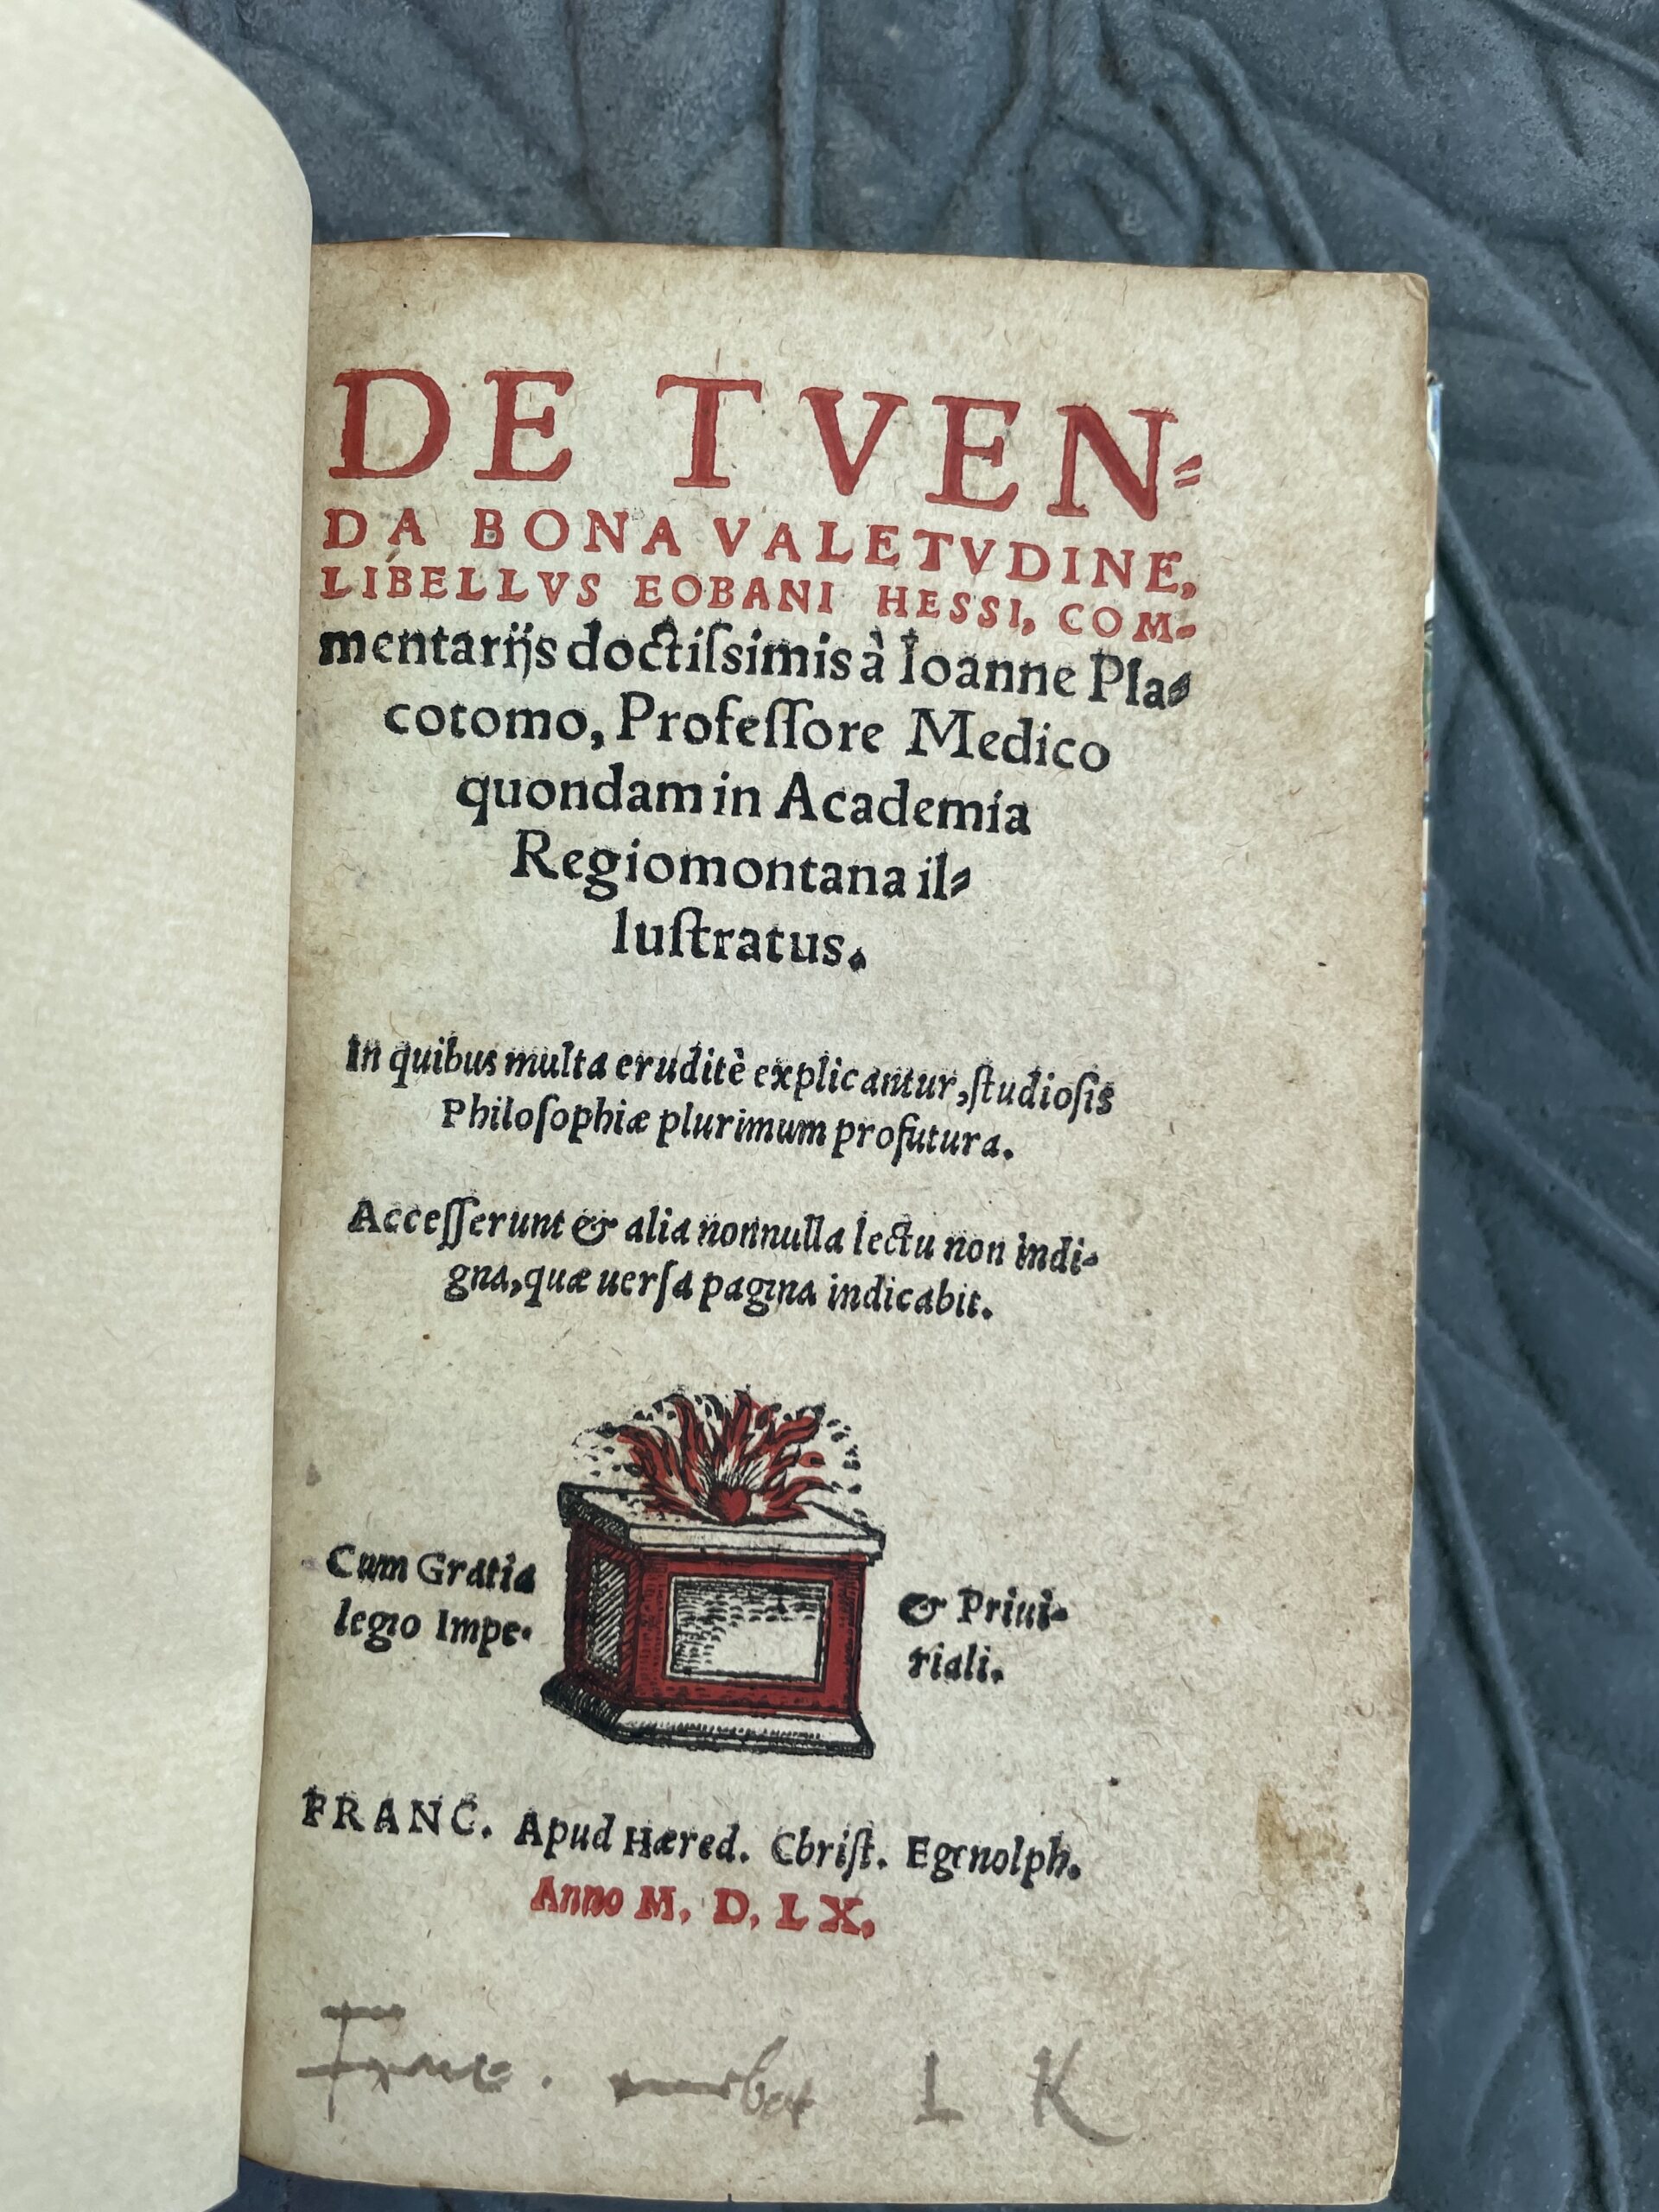 DE TVEN-
DA BONA VALETVDINE,
LIBELLVS EOBANI HESSI, COM-
mentarijs doctiſsimis à Ioanne Pla-
cotomo, Profeſſore Medico
quondam in Academia
Regiomontana il-
luſtratus.
In quibus multa eruditè explicantur, ſtudioſis
Philoſophiæ plurimum profutura.
Acceſſerunt & alia nonnulla lectu non indi-
gna, quæ uerſa pagina indicabit.
Cum Gratia & Priui-
legio Impe- riali.
FRANC. Apud Hæred. Chriſt. Egenolph.
Anno M. D. LX.
L K